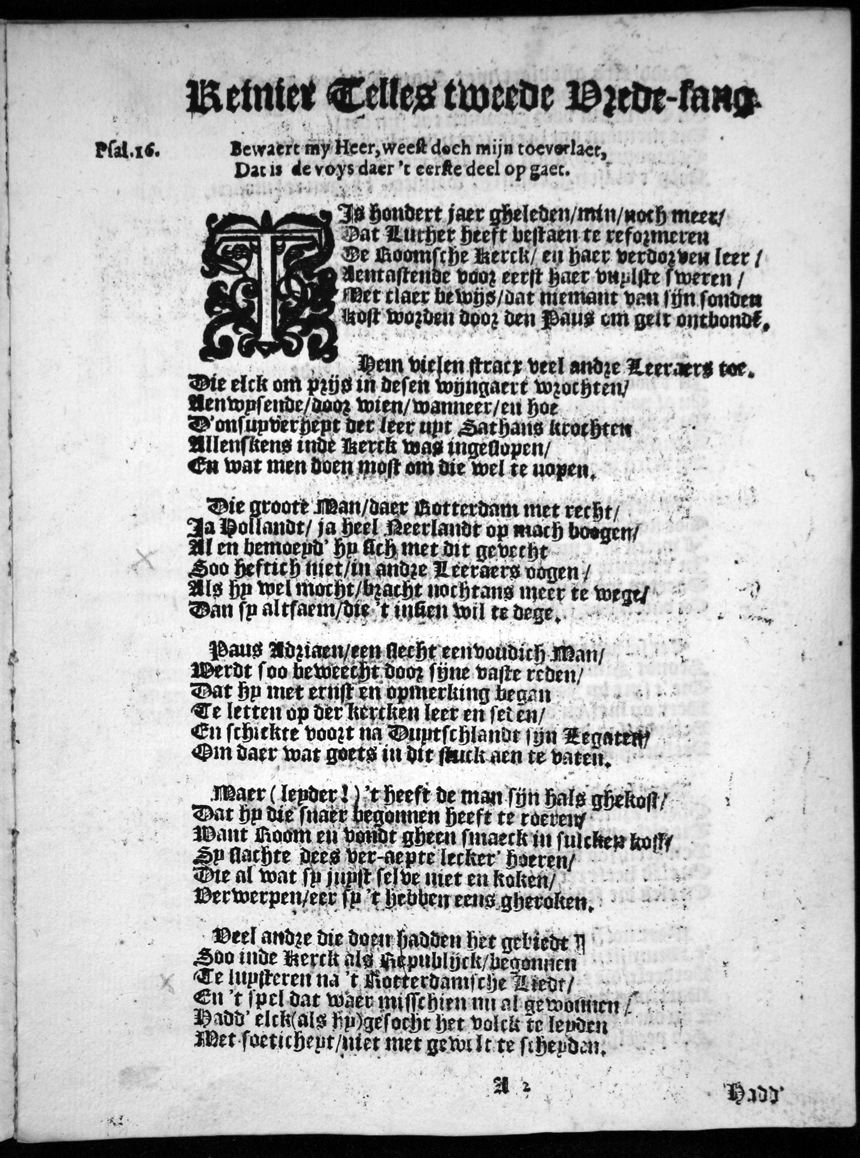 Reinier Telles tweede Vrede-sang.
Psal.16. Bewaert my Heer, weest doch mijn toeverlaet,
Dat is de voys daer 't eerste deel op gaet.
TIs hondert jaer gheleden/min/noch meer/
Dat Luther heeft bestaen te reformeren
De Roomsche Kerck/ en haer verdorven leer /
Aentastende voor eerst haer vuylste sweren /
Met claer bewijs/dat niemant van sijn sonden
Kost worden door den Paus om gelt ontbonde.
Hem vielen stracx veel andre Leeraers toe.
Die elck om prijs in desen wijngaert wrochten/
Aenwysende/door wien/wanneer/en hoe
D'onsuyverheyt der leer uyt Sathans krochten
Allenskens inde Kerck was ingeslopen/
En wat men doen most om die wel te nopen.
Die groote Man/daer Rotterdam met recht/
Ja Hollandt/ ja heel Neerlandt op mach boogen/
Al en bemoeyd' hy sich met dit gevecht
Soo heftich niet/in andre Leeraers oogen/
Als hy wel mocht/bracht nochtans meer te wege/
Dan sy altsaem/die 't insien wil te dege.
Paus Adriaen/een slecht eenvoudich Man/
Werdt soo beweecht door sijne vaste reden/
Dat hy met ernst en opmerking began
Te letten op der kercken leer en seden/
En schickte voort na Duytschlandt sijn Legaten/
Om daer wat goets in dit stuck aen te vaten.
Maer (leyder!) 't heeft de man sijn hals ghekost/
Dat hy die snaer begonnen heeft te roeren/
Want Room en vondt gheen smaeck in sulcken kost/
Sy slachte dees ver-aepte lecker' hoeren/
Die al wat sy juyst selve niet en koken/
Verwerpen/eer sy 't hebben eens gheroken.
Veel andre die doen hadden het gebiedt
Soo inde Kerck als Republijck/begonnen
Te luysteren na 't Rotterdamsche Liedt/
En 't spel dat waer misschien nu al gewonnen /
Hadd' elck(als hy)gesocht het volck te leyden
Met soeticheyt/niet met gewelt te scheyden.
A 2
Hadd'